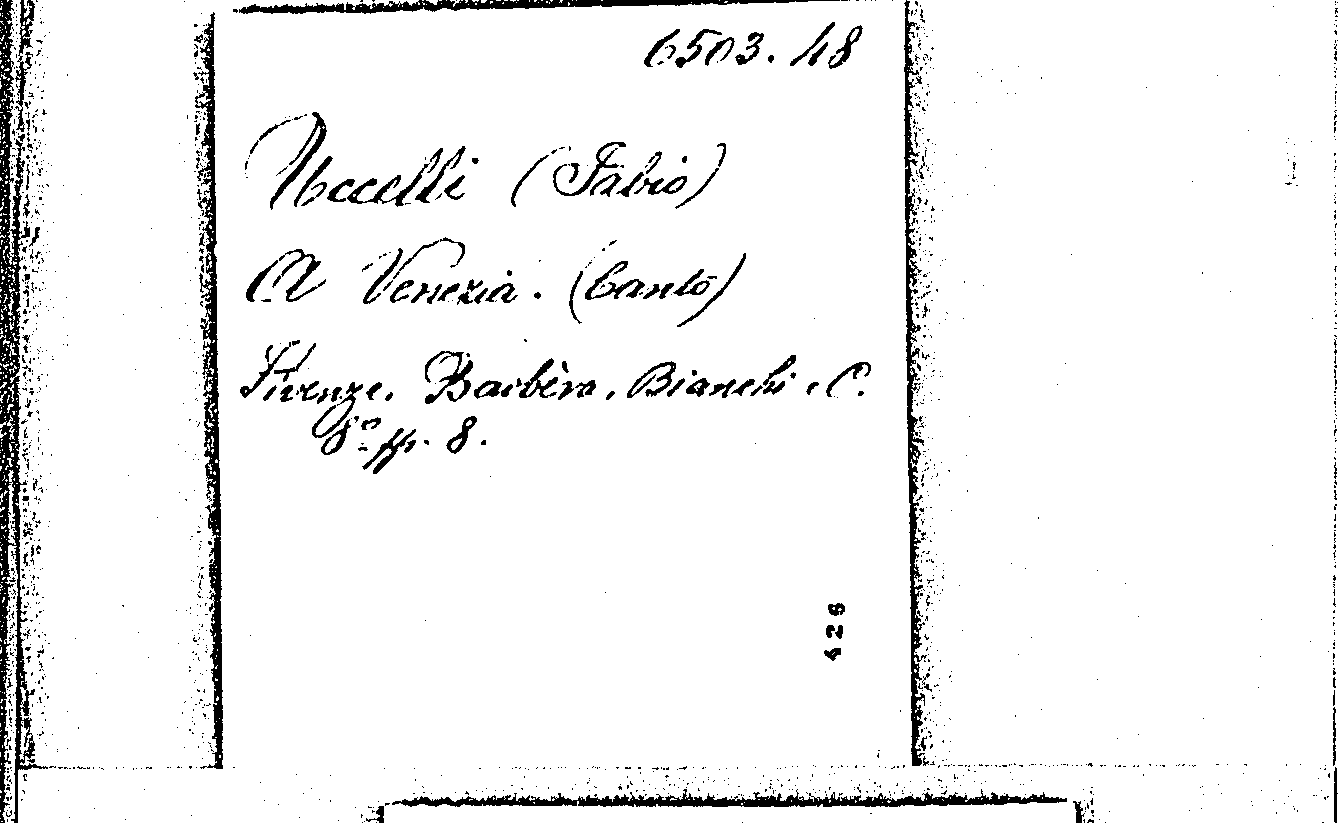 6503.48
Uccelli (Fabio)
A Venezia. (Canto)
Firenze. Barbèra, Bianchi e C.
8º pp. 8.
426